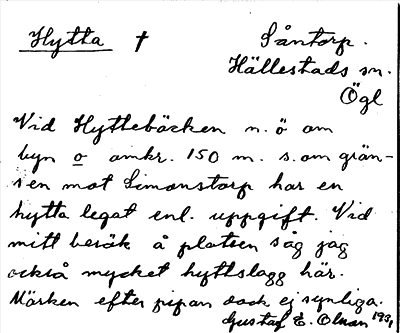 Hytta † Såntorp.
Hällestads sn.
Ögl
Vid Hyttebäcken n.ö om
byn o omkr. 150 m. s.om grän-
sen mot Simonstorp har en
hytta legat enl. uppgift. Vid
mitt besök å platsen såg jag
också mycket hyttslagg här.
Märken efter pipan dock ej synliga.
Gustaf E. Olsson 1931